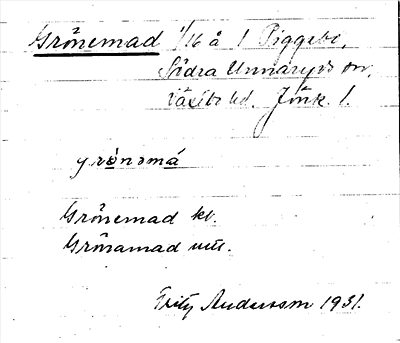 Grönemad 1/16 å 1 Piggebo,
Södra Unnaryds sn,
Västbo hd. Jönk. l.
grönəmá
Grönemad kv.
Grönamad
Fritz Andersson 1931.